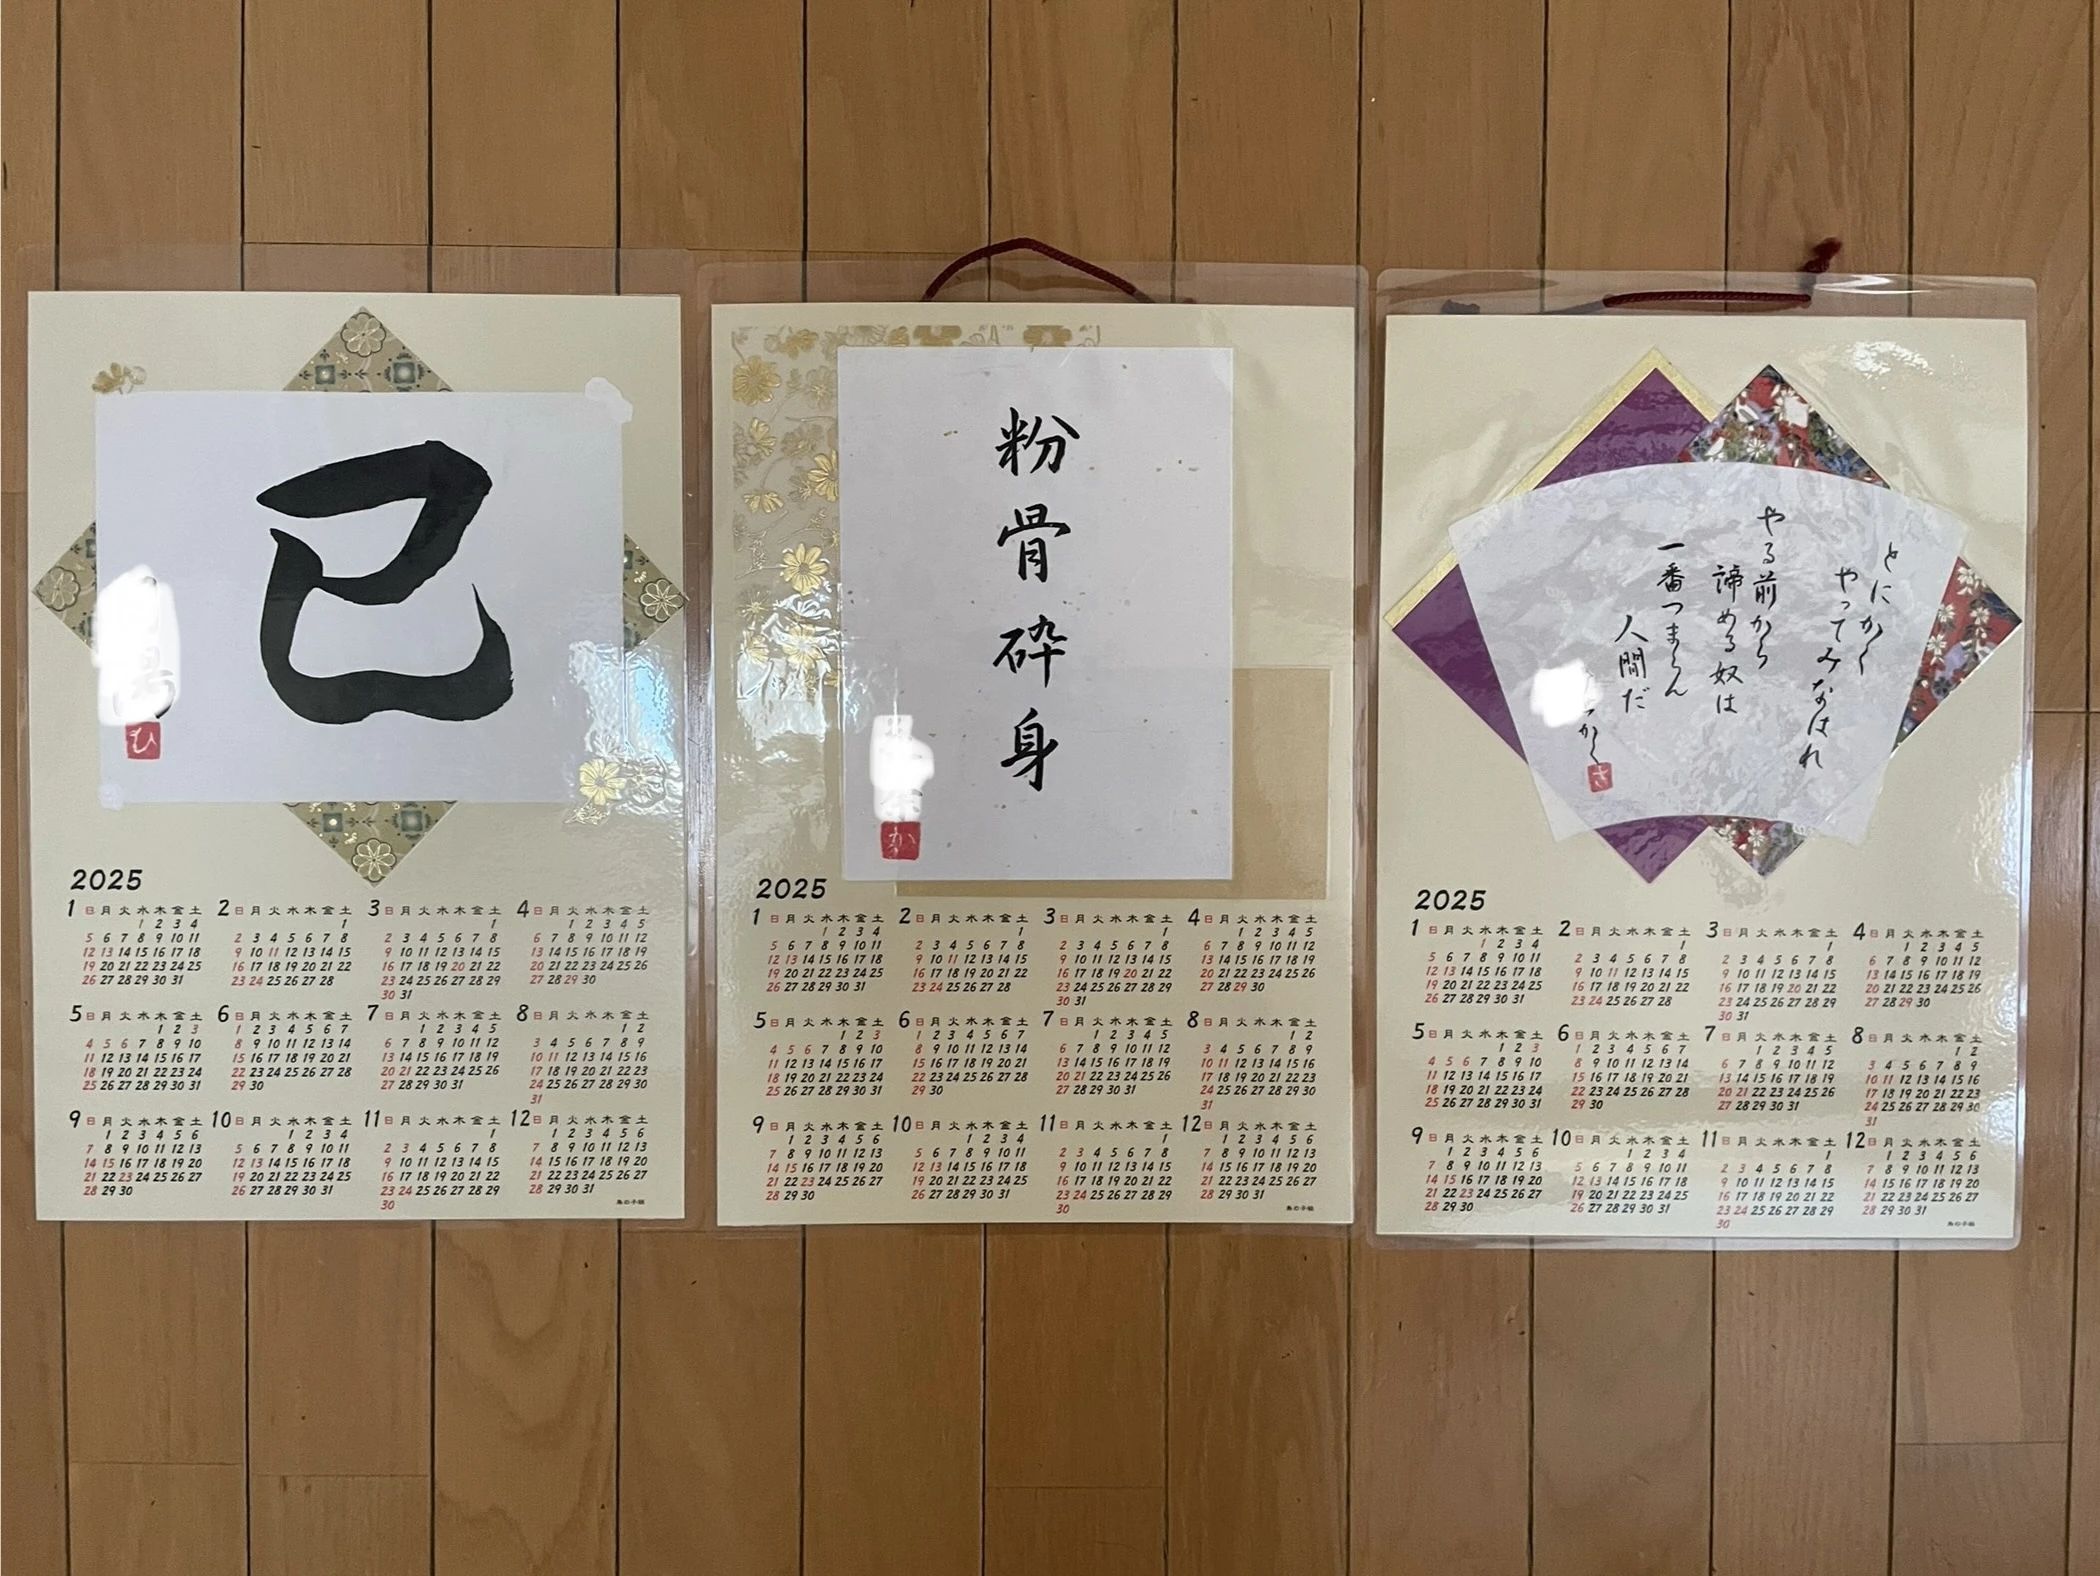 己
ひ
2025
1 日 月 火 水 木 金 土
1 2 3 4
5 6 7 8 9 10 11
12 13 14 15 16 17 18
19 20 21 22 23 24 25
26 27 28 29 30 31
2 日 月 火 水 木 金 土
1
2 3 4 5 6 7 8
9 10 11 12 13 14 15
16 17 18 19 20 21 22
23 24 25 26 27 28
3 日 月 火 水 木 金 土
1
2 3 4 5 6 7 8
9 10 11 12 13 14 15
16 17 18 19 20 21 22
23 24 25 26 27 28 29
30 31
4 日 月 火 水 木 金 土
1 2 3 4 5
6 7 8 9 10 11 12
13 14 15 16 17 18 19
20 21 22 23 24 25 26
27 28 29 30
5 日 月 火 水 木 金 土
1 2 3
4 5 6 7 8 9 10
11 12 13 14 15 16 17
18 19 20 21 22 23 24
25 26 27 28 29 30 31
6 日 月 火 水 木 金 土
1 2 3 4 5 6 7
8 9 10 11 12 13 14
15 16 17 18 19 20 21
22 23 24 25 26 27 28
29 30
7 日 月 火 水 木 金 土
1 2 3 4 5
6 7 8 9 10 11 12
13 14 15 16 17 18 19
20 21 22 23 24 25 26
27 28 29 30 31
8 日 月 火 水 木 金 土
1 2
3 4 5 6 7 8 9
10 11 12 13 14 15 16
17 18 19 20 21 22 23
24 25 26 27 28 29 30
31
9 日 月 火 水 木 金 土
1 2 3 4 5 6
7 8 9 10 11 12 13
14 15 16 17 18 19 20
21 22 23 24 25 26 27
28 29 30
10 日 月 火 水 木 金 土
1 2 3 4
5 6 7 8 9 10 11
12 13 14 15 16 17 18
19 20 21 22 23 24 25
26 27 28 29 30 31
11 日 月 火 水 木 金 土
1
2 3 4 5 6 7 8
9 10 11 12 13 14 15
16 17 18 19 20 21 22
23 24 25 26 27 28 29
30
12 日 月 火 水 木 金 土
1 2 3 4 5 6
7 8 9 10 11 12 13
14 15 16 17 18 19 20
21 22 23 24 25 26 27
28 29 30 31
粉骨砕身
か
2025
1 日 月 火 水 木 金 土
1 2 3 4
5 6 7 8 9 10 11
12 13 14 15 16 17 18
19 20 21 22 23 24 25
26 27 28 29 30 31
2 日 月 火 水 木 金 土
1
2 3 4 5 6 7 8
9 10 11 12 13 14 15
16 17 18 19 20 21 22
23 24 25 26 27 28
3 日 月 火 水 木 金 土
1
2 3 4 5 6 7 8
9 10 11 12 13 14 15
16 17 18 19 20 21 22
23 24 25 26 27 28 29
30 31
4 日 月 火 水 木 金 土
1 2 3 4 5
6 7 8 9 10 11 12
13 14 15 16 17 18 19
20 21 22 23 24 25 26
27 28 29 30
5 日 月 火 水 木 金 土
1 2 3
4 5 6 7 8 9 10
11 12 13 14 15 16 17
18 19 20 21 22 23 24
25 26 27 28 29 30 31
6 日 月 火 水 木 金 土
1 2 3 4 5 6 7
8 9 10 11 12 13 14
15 16 17 18 19 20 21
22 23 24 25 26 27 28
29 30
7 日 月 火 水 木 金 土
1 2 3 4 5
6 7 8 9 10 11 12
13 14 15 16 17 18 19
20 21 22 23 24 25 26
27 28 29 30 31
8 日 月 火 水 木 金 土
1 2
3 4 5 6 7 8 9
10 11 12 13 14 15 16
17 18 19 20 21 22 23
24 25 26 27 28 29 30
31
9 日 月 火 水 木 金 土
1 2 3 4 5 6
7 8 9 10 11 12 13
14 15 16 17 18 19 20
21 22 23 24 25 26 27
28 29 30
10 日 月 火 水 木 金 土
1 2 3 4
5 6 7 8 9 10 11
12 13 14 15 16 17 18
19 20 21 22 23 24 25
26 27 28 29 30 31
11 日 月 火 水 木 金 土
1
2 3 4 5 6 7 8
9 10 11 12 13 14 15
16 17 18 19 20 21 22
23 24 25 26 27 28 29
30
12 日 月 火 水 木 金 土
1 2 3 4 5 6
7 8 9 10 11 12 13
14 15 16 17 18 19 20
21 22 23 24 25 26 27
28 29 30 31
とにかく
やってみなはれ
やる前から
諦める奴は
一番つまらん
人間だ
さ
2025
1 日 月 火 水 木 金 土
1 2 3 4
5 6 7 8 9 10 11
12 13 14 15 16 17 18
19 20 21 22 23 24 25
26 27 28 29 30 31
2 日 月 火 水 木 金 土
1
2 3 4 5 6 7 8
9 10 11 12 13 14 15
16 17 18 19 20 21 22
23 24 25 26 27 28
3 日 月 火 水 木 金 土
1
2 3 4 5 6 7 8
9 10 11 12 13 14 15
16 17 18 19 20 21 22
23 24 25 26 27 28 29
30 31
4 日 月 火 水 木 金 土
1 2 3 4 5
6 7 8 9 10 11 12
13 14 15 16 17 18 19
20 21 22 23 24 25 26
27 28 29 30
5 日 月 火 水 木 金 土
1 2 3
4 5 6 7 8 9 10
11 12 13 14 15 16 17
18 19 20 21 22 23 24
25 26 27 28 29 30 31
6 日 月 火 水 木 金 土
1 2 3 4 5 6 7
8 9 10 11 12 13 14
15 16 17 18 19 20 21
22 23 24 25 26 27 28
29 30
7 日 月 火 水 木 金 土
1 2 3 4 5
6 7 8 9 10 11 12
13 14 15 16 17 18 19
20 21 22 23 24 25 26
27 28 29 30 31
8 日 月 火 水 木 金 土
1 2
3 4 5 6 7 8 9
10 11 12 13 14 15 16
17 18 19 20 21 22 23
24 25 26 27 28 29 30
31
9 日 月 火 水 木 金 土
1 2 3 4 5 6
7 8 9 10 11 12 13
14 15 16 17 18 19 20
21 22 23 24 25 26 27
28 29 30
10 日 月 火 水 木 金 土
1 2 3 4
5 6 7 8 9 10 11
12 13 14 15 16 17 18
19 20 21 22 23 24 25
26 27 28 29 30 31
11 日 月 火 水 木 金 土
1
2 3 4 5 6 7 8
9 10 11 12 13 14 15
16 17 18 19 20 21 22
23 24 25 26 27 28 29
30
12 日 月 火 水 木 金 土
1 2 3 4 5 6
7 8 9 10 11 12 13
14 15 16 17 18 19 20
21 22 23 24 25 26 27
28 29 30 31